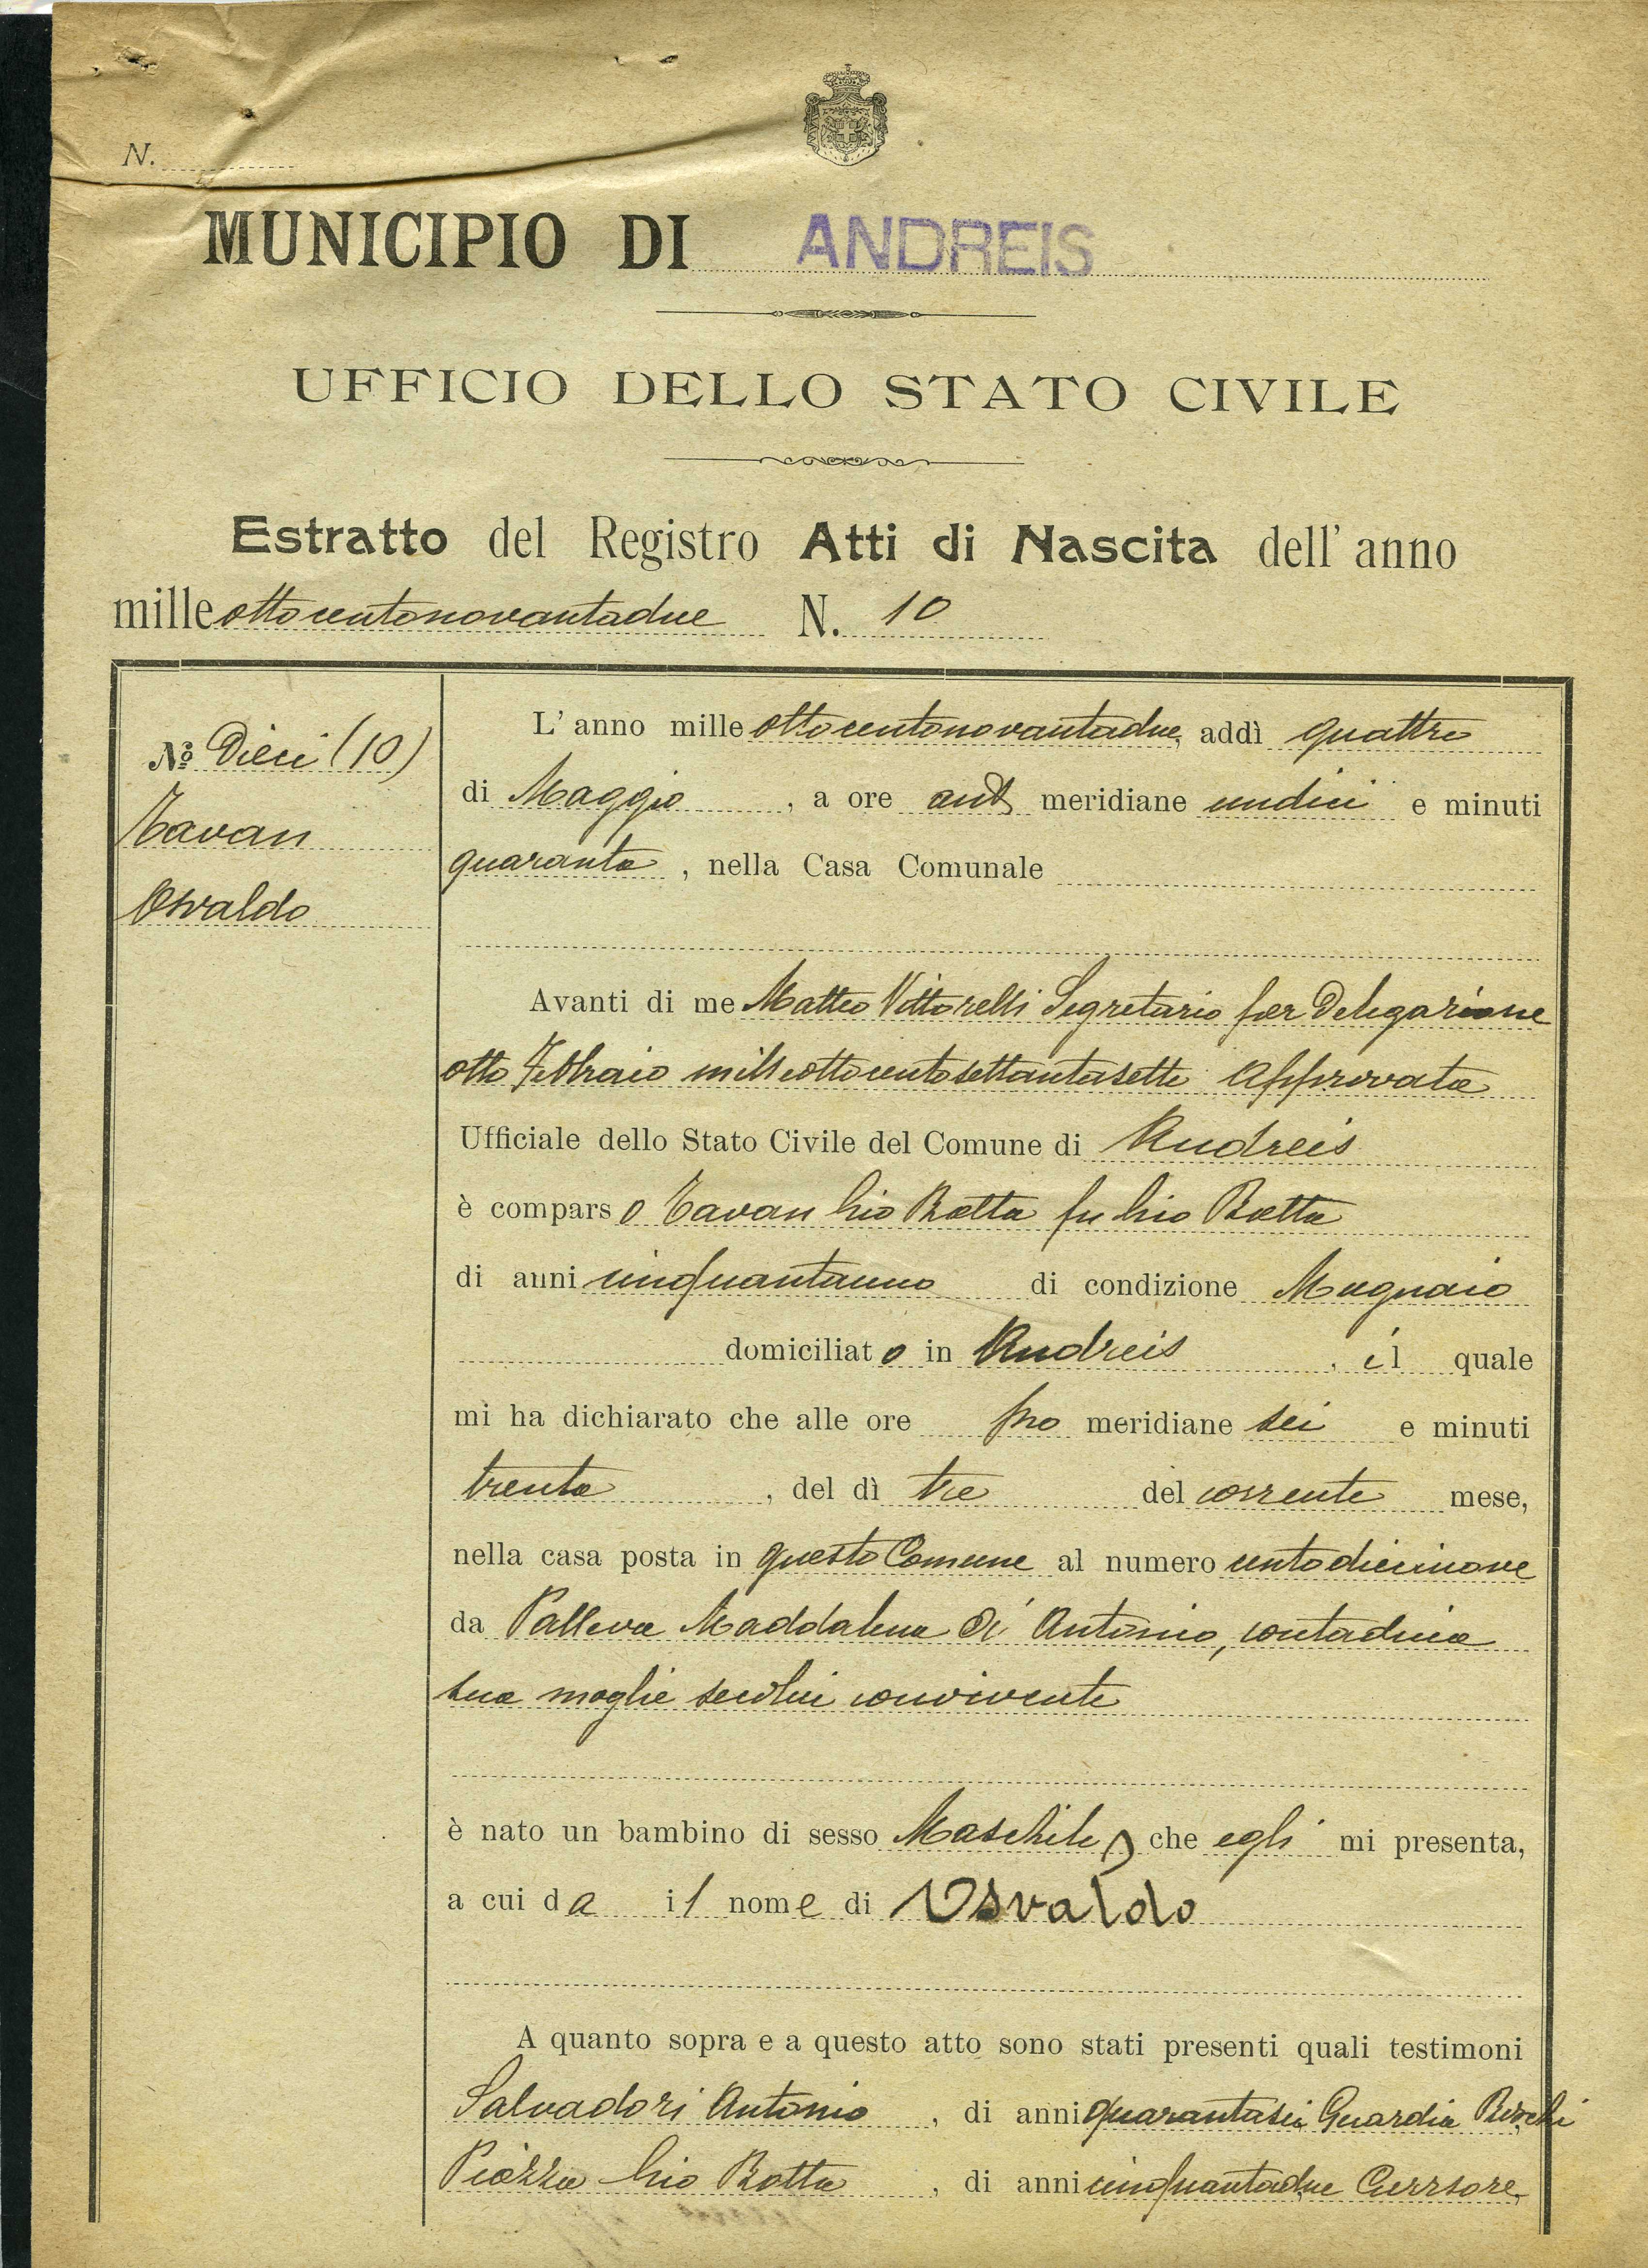 N.
MUNICIPIO DI ANDREIS
UFFICIO DELLO STATO CIVILE
Estratto del Registro Atti di Nascita dell'anno
mille ottocentonovantadue N. 10
Nº Dieci (10)
Tavan
Osvaldo
L'anno mille ottocentonovantadue, addì quattro
di Maggio, a ore ant meridiane undici e minuti
quaranta, nella Casa Comunale
Avanti di me Matteo Vittorelli Segretario per Delegazione
otto Febbraio milleottocentosettantasette Approvata
Ufficiale dello Stato Civile del Comune di Andreis
è comparso Tavan Gio Batta fu Gio Batta
di anni cinquantauno di condizione Mugnaio
domiciliato in Andreis, il quale
mi ha dichiarato che alle ore po meridiane sei e minuti
trenta, del dì tre del corrente mese,
nella casa posta in questo Comune al numero centodiecinove
da Palleva Maddalena di Antonio, contadina
sua moglie secolui convivente
è nato un bambino di sesso Maschile, che egli mi presenta,
a cui da il nome di Osvaldo
A quanto sopra e a questo atto sono stati presenti quali testimoni
Salvadori Antonio, di anni quarantasei Guardia Boschi
Piazza Gio Batta, di anni cinquantadue Cursore,